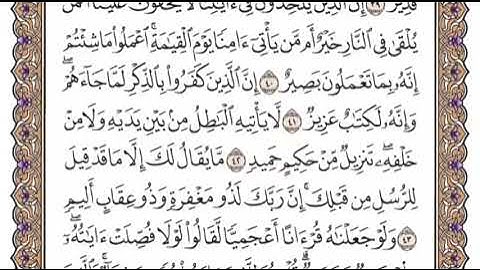 قَدِيرٌ ٣٩ إِنَّ ٱلَّذِينَ يُلْحِدُونَ فِىٓ ءَايَٰتِنَا لَا يَخْفَوْنَ عَلَيْنَآ أَفَمَن
يُلْقَىٰ فِى ٱلنَّارِ خَيْرٌ أَم مَّن يَأْتِىٓ ءَامِنًا يَوْمَ ٱلْقِيَٰمَةِ ۚ ٱعْمَلُوا۟ مَا شِئْتُمْ
إِنَّهُۥ بِمَا تَعْمَلُونَ بَصِيرٌ ٤٠ إِنَّ ٱلَّذِينَ كَفَرُوا۟ بِٱلذِّكْرِ لَمَّا جَآءَهُمْ ۖ
وَإِنَّهُۥ لَكِتَٰبٌ عَزِيزٌ ٤١ لَّا يَأْتِيهِ ٱلْبَٰطِلُ مِنۢ بَيْنِ يَدَيْهِ وَلَا مِنْ
خَلْفِهِۦ ۖ تَنزِيلٌ مِّنْ حَكِيمٍ حَمِيدٍ ٤٢ مَّا يُقَالُ لَكَ إِلَّا مَا قَدْ قِيلَ
لِلرُّسُلِ مِن قَبْلِكَ ۚ إِنَّ رَبَّكَ لَذُو مَغْفِرَةٍ وَذُو عِقَابٍ أَلِيمٍ
٤٣ وَلَوْ جَعَلْنَٰهُ قُرْءَانًا أَعْجَمِيًّا لَّقَالُوا۟ لَوْلَا فُصِّلَتْ ءَايَٰتُهُۥٓ ۖ